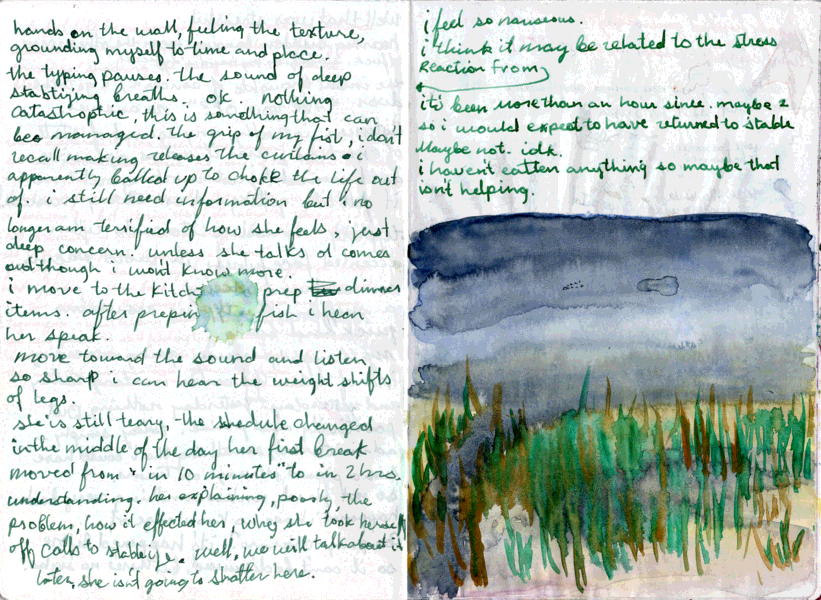 hands on the wall, feeling the texture,
grounding myself to time and place.
the typing pauses. the sound of deep
stabilizing breaths. ok. nothing
catastrophic, this is something that can
bee managed. the grip of my fist, i don't
recall making releases the curtains i
apparently balled up to choke the life out
of. i still need information but i no
longer am terrified of how she feels, just
deep concern. unless she talks or comes
out though i won't know more.
i move to the kitch prep dinner
items. after prepin fish i hear
her speak.
move toward the sound and listen
so sharp i can hear the weight shifts
of legs.
she is still teary, the shedule changed
in the middle of the day her first break
moved from "in 10 minutes" to in 2 hrs.
understanding. her explaining, poorly, the
problem, how it effected her, why she took herself
off calls to stabilize. well, we will talk about it
later, she isn't going to shatter here.
i feel so nauseous.
i think it may be related to the stress
Reaction from
it's been more than an hour since. maybe 2
so i would expect to have returned to stable
Maybe not. idk.
i haven't eatten anything so maybe that
isn't helping.